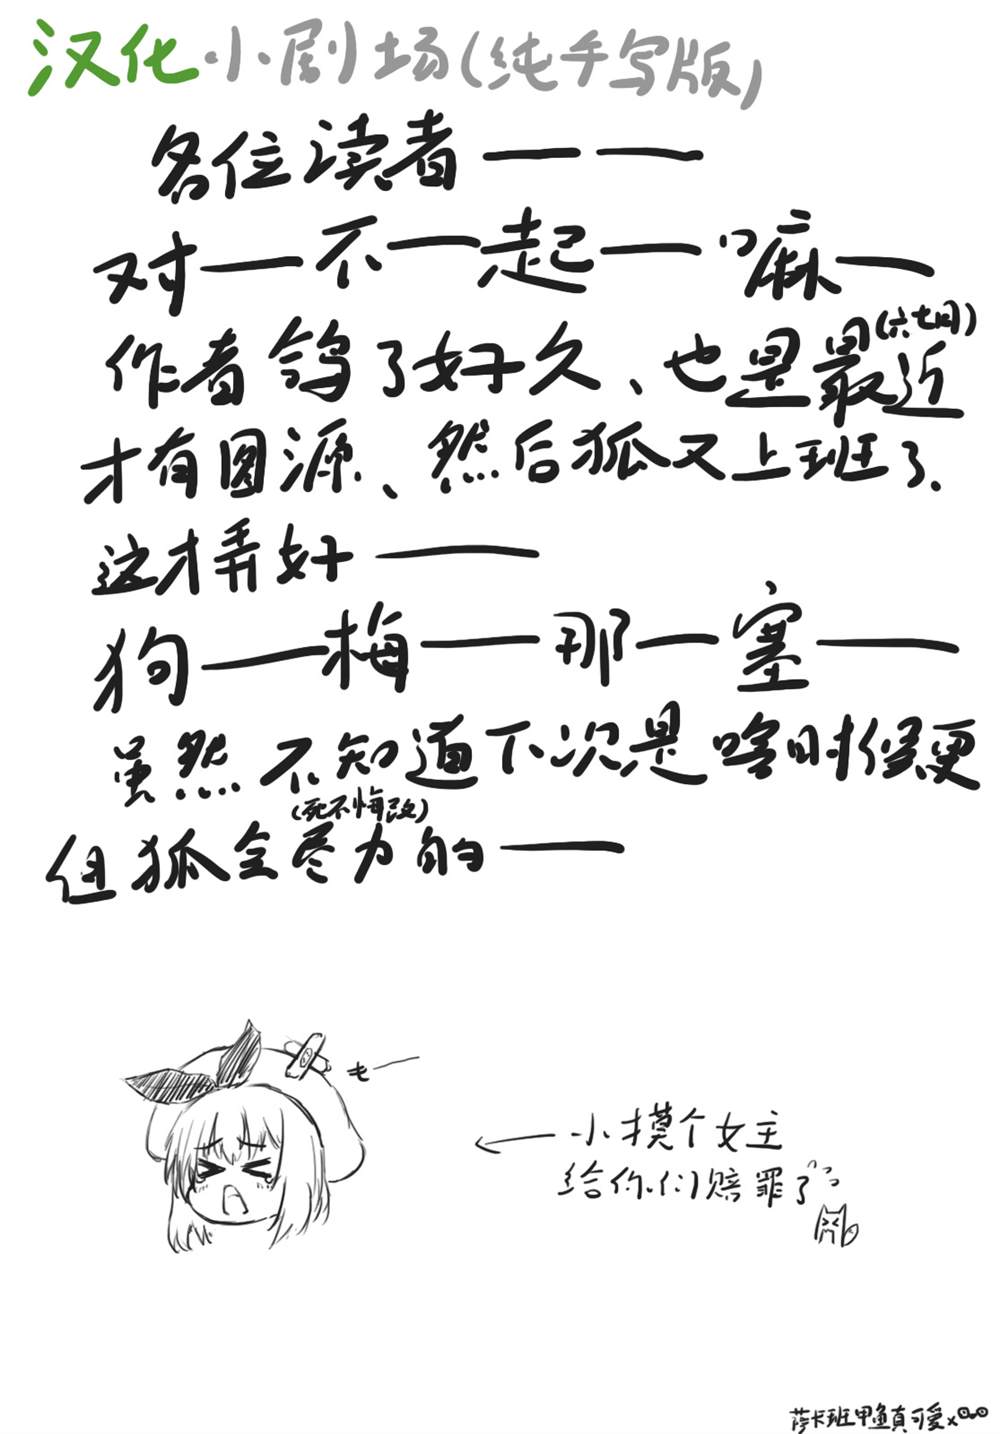 汉化小剧场(纯手写版)
各位读者——
对—不—起—嘛—
作者鸽了好久、也是最近(六七月)
才有图源、然后狐又上班了.
这才弄好——
狗—梅—那—塞—
虽然不知道下次是啥时候更
但狐会尽力的—
(死不悔改)
小摸个女主
给你们赔罪了
萨卡班甲鱼真可爱x